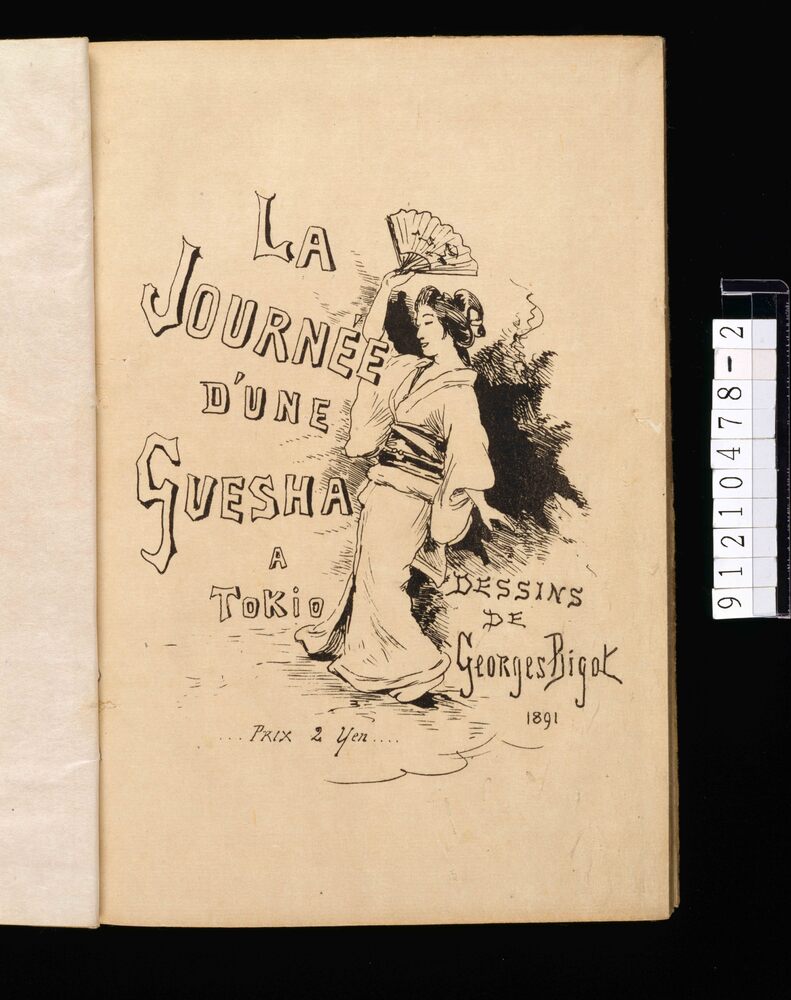 LA
JOURNÉE
D'UNE
GUESHA
A
TOKiO
DESSINS
DE
Georges Bigot
1891
...PRIX 2 Yen....
91210478-2